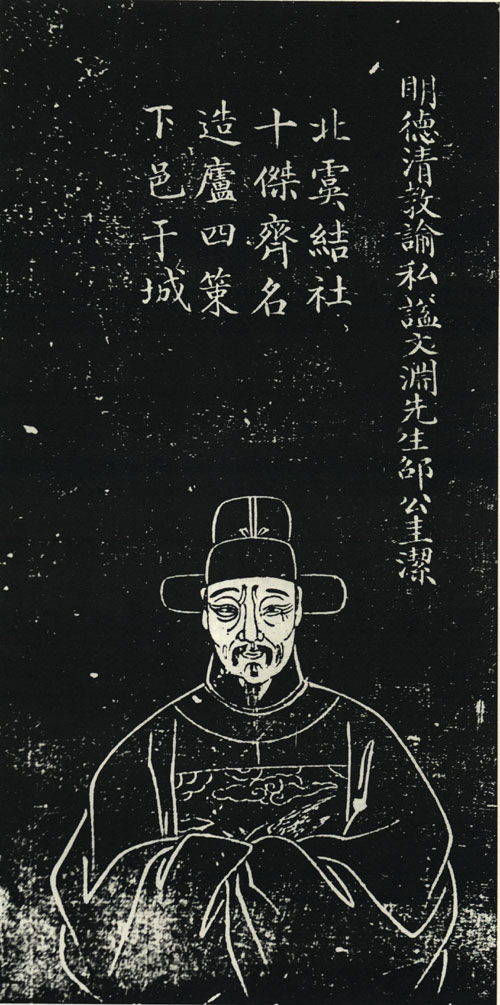 明德清教諭私謚文淵先生邵公圭潔
北虞結社
十傑齊名
造廬四策
下邑干城